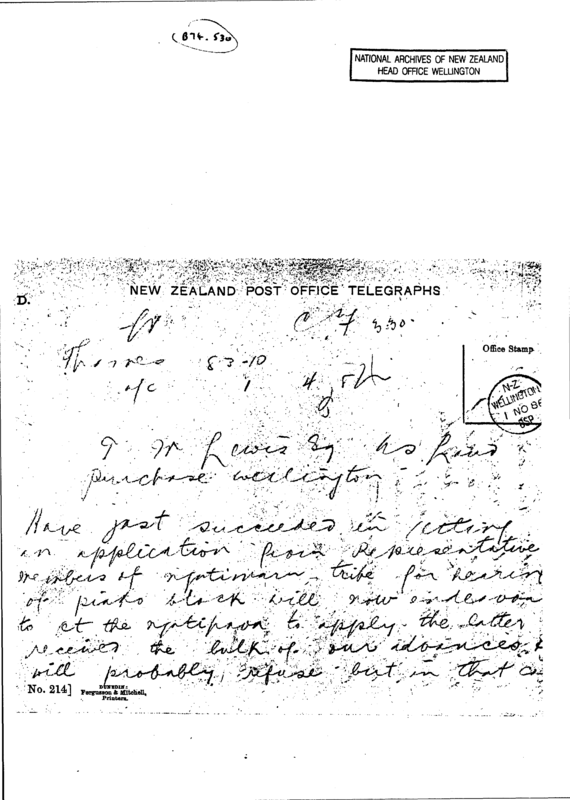 (B74.530)
NATIONAL ARCHIVES OF NEW ZEALAND
HEAD OFFICE WELLINGTON
D.
NEW ZEALAND POST OFFICE TELEGRAPHS
3.30
Office Stamp
Thames 83-10
o/c 1 4
N-Z
WELLINGTON
1 NO 86
T W Lewis Esq Land
purchase wellington
Have just succeeded in getting
an application from Representative
members of ngatimaru tribe for hearing
of piako block will now endeavou
to et the ngatipaoa to apply the latter
received the bulk of our advances &
will probably refuse but in that ca
No. 214]
DUNEDIN:
Fergusson & Mitchell,
Printers.